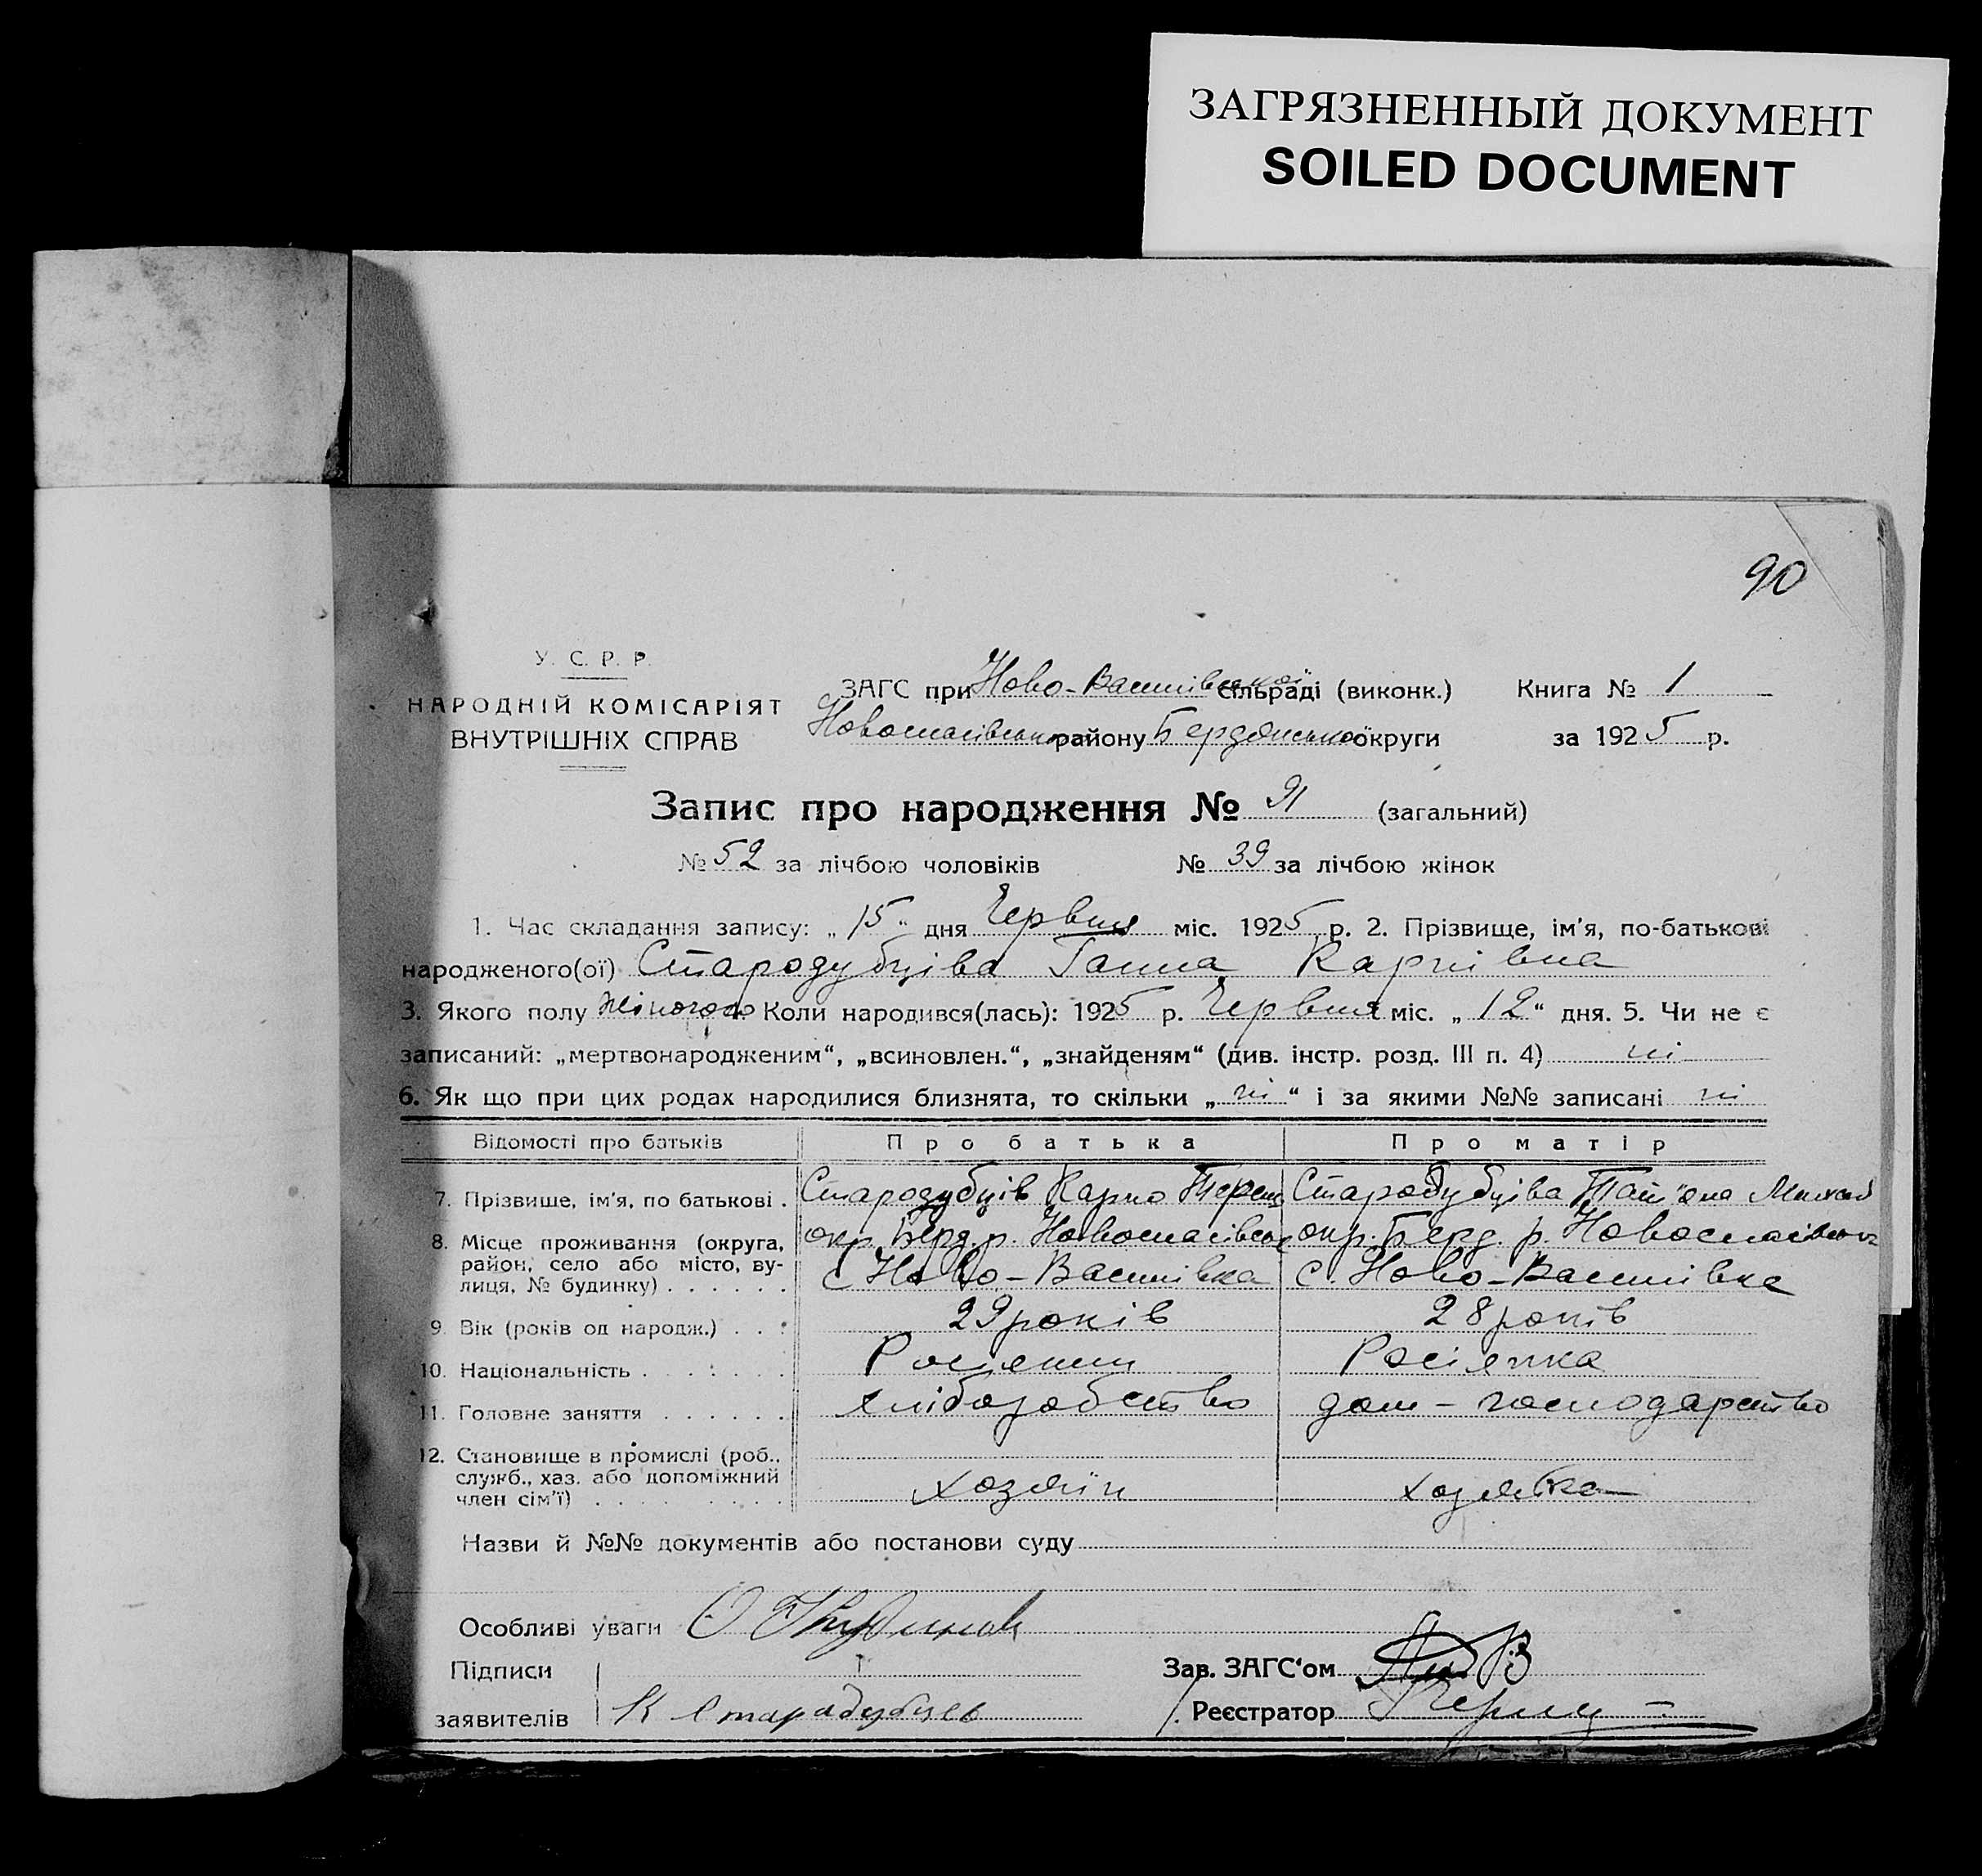 ЗАГРЯЗНЕННЫЙ ДОКУМЕНТ
SOILED DOCUMENT
90
У. С. Р. Р.
НАРОДНІЙ КОМІСАРІЯТ
ВНУТРІШНІХ СПРАВ
ЗАГС при Ново-Василівської сільраді (виконк.) Книга № 1
Новоспасівсько району Бердянської округи за 1925 р.
Запис про народження № 91 (загальний)
№ 52 за лічбою чоловіків № 39 за лічбою жінок
1. Час складання запису: „15“ дня Червня міс. 1925 р. 2. Прізвище, ім'я, по-батькові
народженого(ої) Стародубціва Ганна Карпівна
3. Якого полу жіночого Коли народився(лась): 1925 р. Червня міс. „12“ дня. 5. Чи не є
записаний: „мертвонародженим“, „всиновлен.“, „знайденям“ (див. інстр. розд. III п. 4) ні
6. Як що при цих родах народилися близнята, то скільки „ні“ і за якими №№ записані ні
Відомості про батьків Про батька Про матір
7. Прізвище, ім'я, по батькові . Стародубців Карпо Терент Стародубціва Тат"яна Михай
8. Місце проживання (округа, район, село або місто, вулиця, № будинку) . . . . . . окр. Берд. р. Новоспасівськ окр. Берд. р. Новоспасівськ
с Ново-Василівка с. Ново-Василівка
9. Вік (років од народж.) . . . 29 років 28 років
10. Національність . . . . . . Росіянин Росіянка
11. Головне заняття . . . . . . хліборобство дом-господарство
12. Становище в промислі (роб., служб., хаз. або допоміжний член сім'ї) . . . . . . хозяїн хозяйка
Назви й №№ документів або постанови суду
Особливі уваги
Підписи Зав. ЗАГС'ом
заявителів К Старадубцев Реєстратор